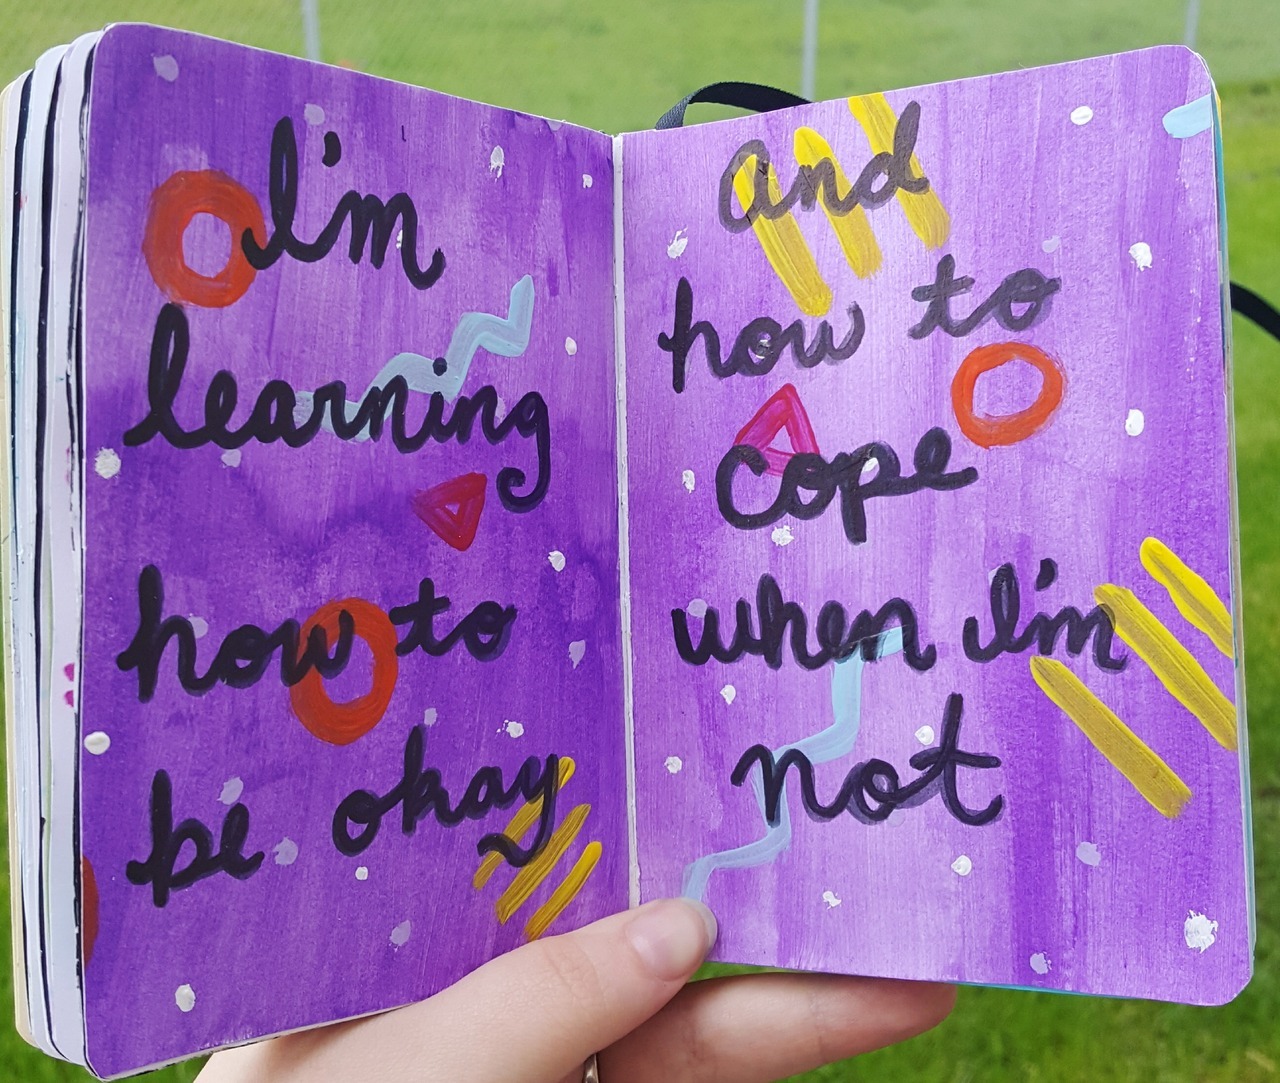 I'm
learning
how to
be okay
and
how to
cope
when I'm
not